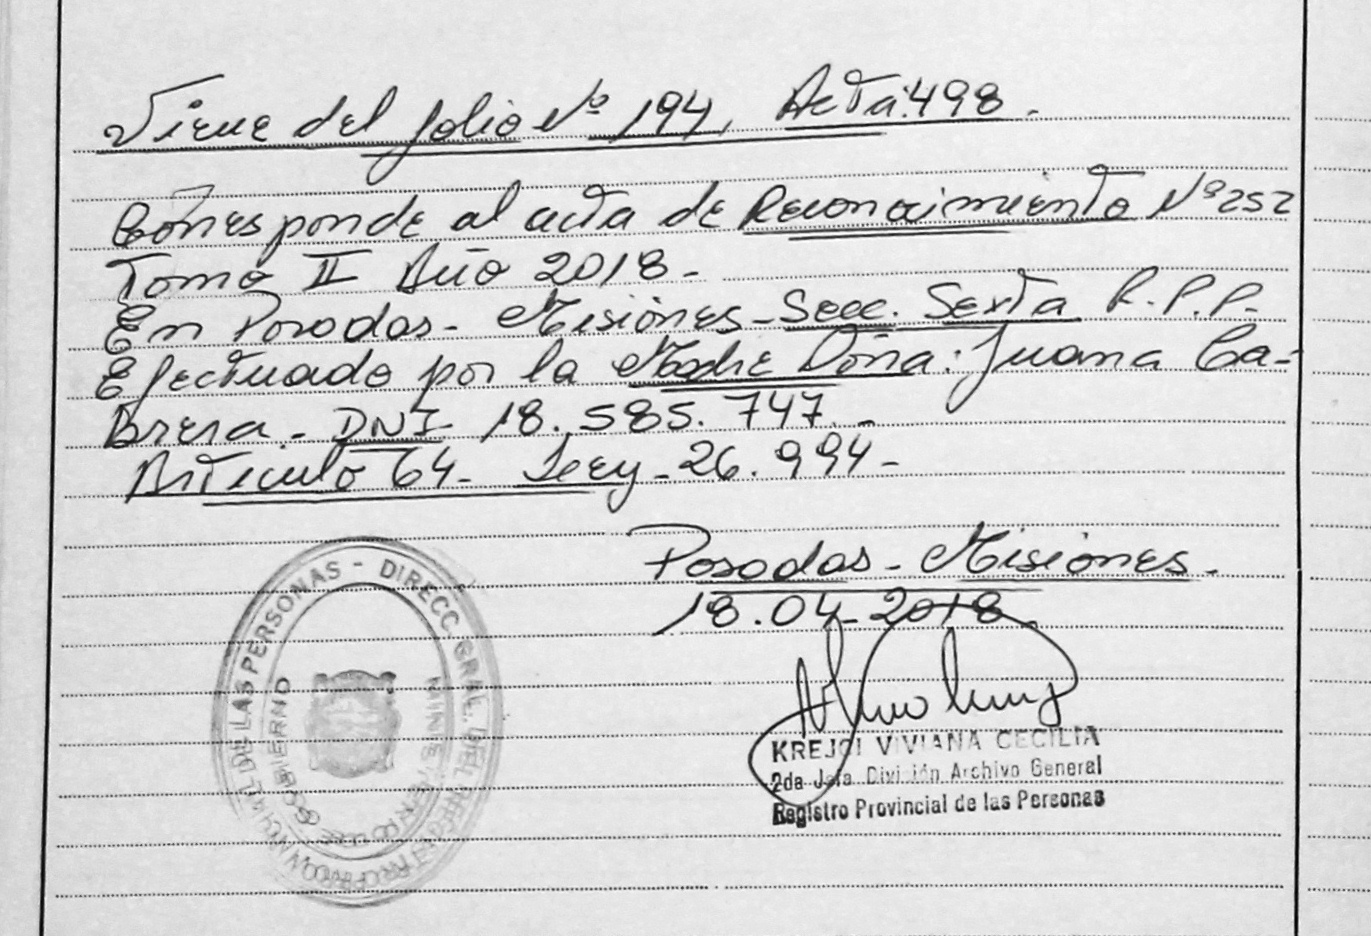 Viene del folio Nº 194, Acta: 498.
Corresponde al acta de Reconocimiento Nº 252
Tomo II Año 2018-
En Posadas- Misiones- Secc. Sexta R.P.P.
Efectuado por la Madre Doña: Juana Ca-
Brera- DNI 18.585.747.-
Articulo 64- Ley- 26.994-
Posadas- Misiones-
18.04-2018
KREJCI VIVIANA CECILIA
2da Jefa División Archivo General
Registro Provincial de las Personas
DE LAS PERSONAS - DIRECC. GRAL. DEL